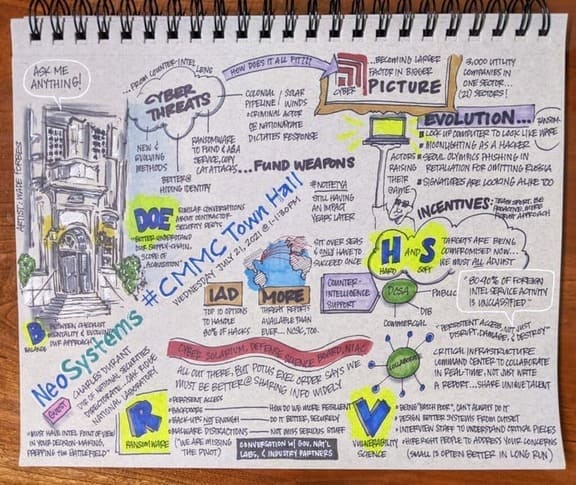 ASK ME
ANYTHING!
...FROM COUNTER-INTEL LENS
CYBER
THREATS
HOW DOES IT ALL FIT???
CYBER
...BECOMING LARGER
FACTOR IN BIGGER
PICTURE
3,000 UTILITY
COMPANIES IN
ONE SECTOR...
(21) SECTORS!
COLONIAL / SOLAR
PIPELINE / WINDS
CRIMINAL ACTOR
OR NATIONSTATE
DICTATES RESPONSE
NEW &
EVOLVING
METHODS
BETTER @
HIDING IDENTITY
RANSOMWARE
TO FUND
SERVICE, COPY
CAT ATTACKS...
...FUND WEAPONS
#NOTPETYA
STILL HAVING
AN IMPACT
YEARS LATER
ACTORS
RAISING
THEIR
GAME
EVOLUTION...
RANSOM-
WARE
LOCK UP COMPUTER TO LOOK LIKE
MOONLIGHTING AS A HACKER
SEOUL OLYMPICS PHISHING IN
RETALIATION FOR OMITTING RUSSIA
SIGNATURES ARE LOOKING ALIKE TOO
INCENTIVES: TEAM SPORT, BE
PROACTIVE, MORE
APPROACH
DOE
SIMILAR CONVERSATIONS
ABOUT CONTRACTOR
SECURITY REQTS
"BETTER UNDERSTAND
OUR SUPPLY-CHAIN,
SCOPE OF
"ACQUISITION"
#CMMC Town Hall
WEDNESDAY JULY 21, 2021 @ 1-1:30PM
SIT OVER SEAS
& ONLY HAVE TO
SUCCEED ONCE
H AND S
HARD SOFT
TARGETS ARE BEING
COMPROMISED NOW...
WE MUST ALL ADJUST
IAD
TOP 10 OPTIONS
TO HANDLE
80% OF HACKS
MORE
THREAT REPORTS
AVAILABLE THAN
EVER... NCSC, TOO.
COUNTER-
INTELLIGENCE
SUPPORT
DCSA
PUBLIC
DIB
COMMERCIAL
"80-90% OF FOREIGN
INTEL SERVICE ACTIVITY
IS UNCLASSIFIED"
"PERSISTENT ACCESS, NOT JUST
DISRUPT, DAMAGE, & DESTROY"
B
BALANCE
BETWEEN CHECKLIST
MENTALITY & EVOLVING
OUR APPROACH
NeoSystems
GUEST
CHARLES DURANT
DIR OF NATIONAL SECURITIES
DIRECTORATE... OAK RIDGE
NATIONAL LABORATORY
CYBER SOLARIUM, DEFENSE SCIENCE BOARD, NIAC
ALL OUT THERE, BUT POTUS EXEC ORDER SAYS WE
MUST BE BETTER @ SHARING INFO WIDELY
COLLABORATE
CRITICAL INFRASTRUCTURE
COMMAND CENTER TO COLLABORATE
IN REAL-TIME, NOT JUST WRITE
A REPORT... SHARE UNIQUE TALENT
"MUST HAVE INTEL POINT OF VIEW
IN YOUR DECISION-MAKING,
PREPPING THE BATTLEFIELD"
R
RANSOMWARE
PERSISTENT ACCESS
BACKDOORS HOW DO WE MORE RESILIENT
BACK-UPS NOT ENOUGH DO IT BETTER, SECURELY
MALWARE DISTRACTIONS NOT MISS SERIOUS STUFF
("WE ARE MISSING
THE PIVOT")
CONVERSATION W/ GOV, NAT'L
LABS, & INDUSTRY PARTNERS
V
VULNERABILITY
SCIENCE
BEING "PATCH POOR", CAN'T ALWAYS DO IT
DESIGN BETTER SYSTEMS FROM OUTSET
INTERVIEW STAFF TO UNDERSTAND CRITICAL PIECES
HIRE RIGHT PEOPLE TO ADDRESS YOUR CONCERNS
(SMALL IS OFTEN BETTER IN LONG RUN)